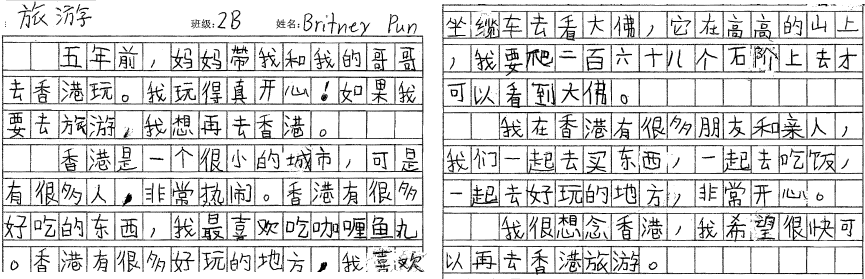 旅游
班级:2B 姓名:Britney Pun
五年前，妈妈带我和我的哥哥
去香港玩。我玩得真开心！如果我
要去旅游，我想再去香港。
香港是一个很小的城市，可是
有很多人，非常热闹。香港有很多
好吃的东西，我最喜欢吃咖喱鱼丸
。香港有很多好玩的地方，我喜欢
坐缆车去看大佛，它在高高的山上
，我要爬二百六十八个石阶上去才
可以看到大佛。
我在香港有很多朋友和亲人，
我们一起去买东西，一起去吃饭，
一起去好玩的地方，非常开心。
我很想念香港，我希望很快可
以再去香港旅游。